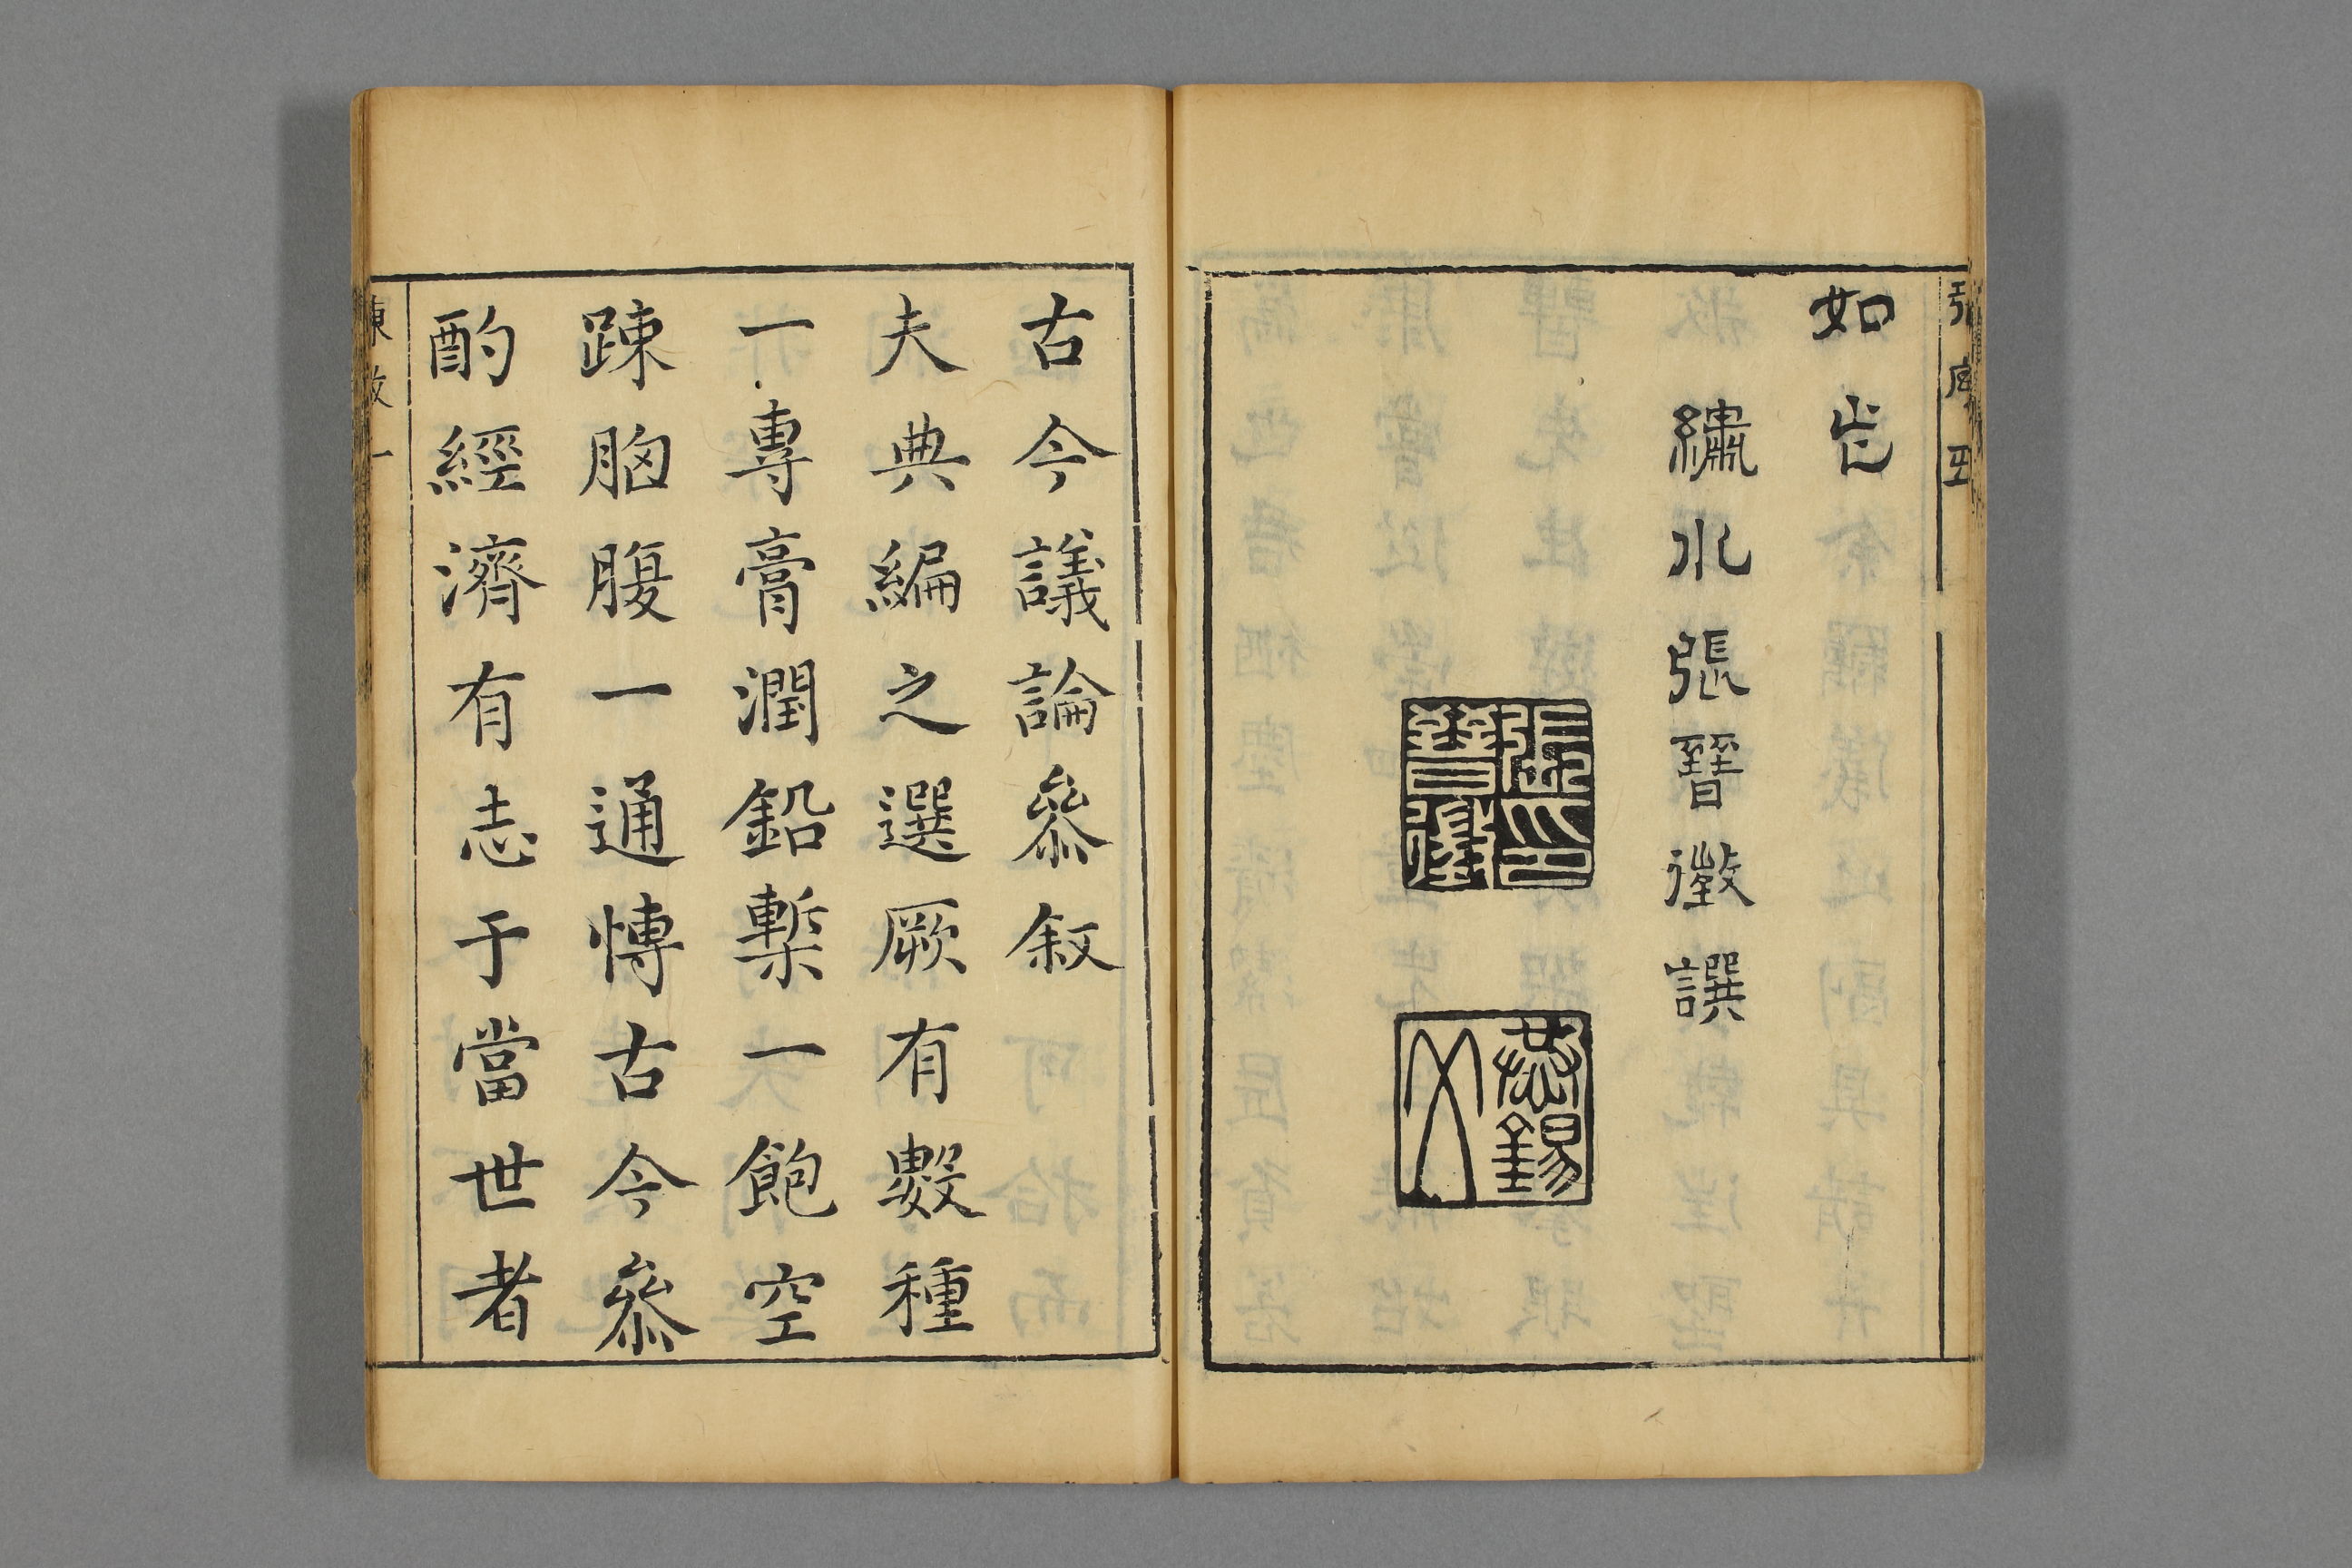 張序 五
如此
繡水張晉徵譔
張印晉徵
恭錫父
古今議論參叙
夫典編之選厥有數種
一專膏潤鉛槧一飽空
踈胸腹一通慱古今參
酌經濟有志于當世者